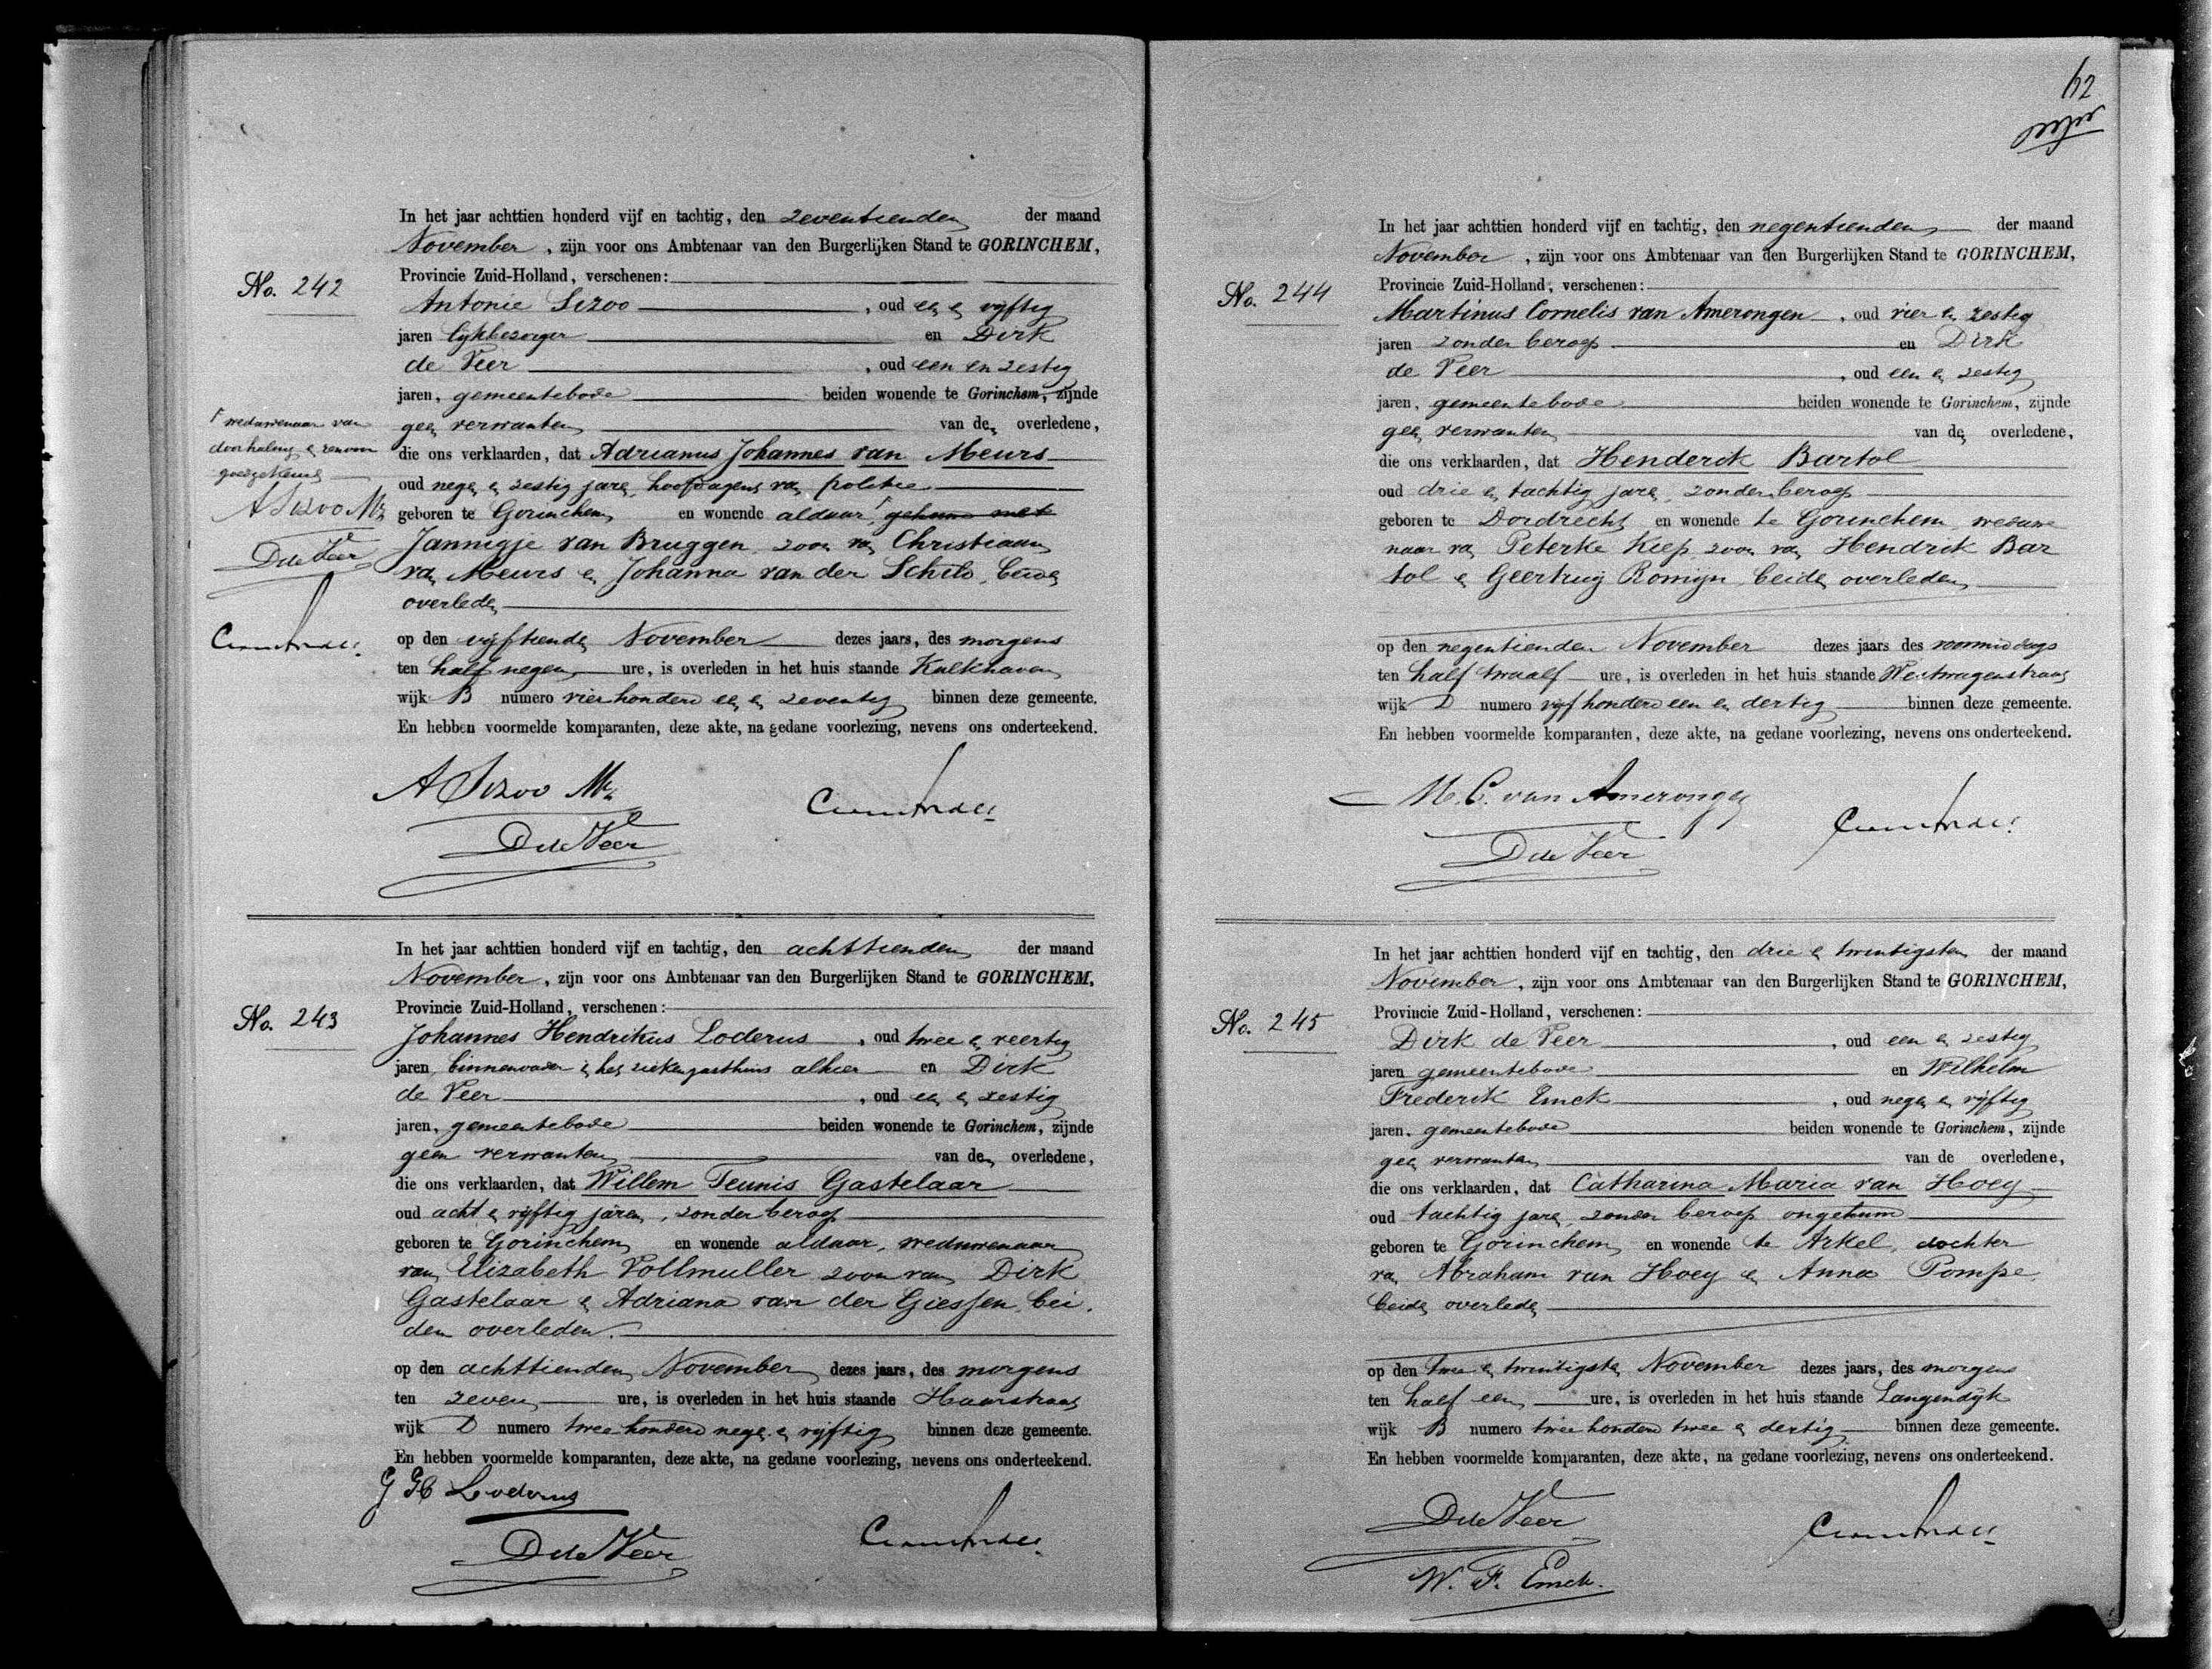 In het jaar achttien honderd vijf en tachtig, den zeventienden der maand
November, zijn voor ons Ambtenaar van den Burgerlijken Stand te GORINCHEM,
No. 242
Provincie Zuid-Holland, verschenen:
Antonie Sizoo, oud een en vijftig
jaren lijkbezorger en Dirk
de Veer, oud een en zestig
jaren, gemeentebode beiden wonende te Gorinchem, zijnde
geen verwanten van den overledene,
die ons verklaarden, dat Adrianus Johannes van Meurs
oud negen en zestig jaren, hoofdagent van politie
geboren te Gorinchem en wonende aldaar, gehuwd met
Jannigje van Bruggen, zoon van Christiaan
van Meurs en Johanna van der Schild, beide
overleden
op den vijftienden November dezes jaars, des morgens
ten half negen ure, is overleden in het huis staande Kalkhaven
wijk B numero vierhonderd een en zeventig binnen deze gemeente.
En hebben voormelde komparanten, deze akte, na gedane voorlezing, nevens ons onderteekend.
weduwenaar van
doorhaling en renvooi
goedgekeurd
A Sizoo Mz
D de Veer
A Sizoo Mz
D de Veer
In het jaar achttien honderd vijf en tachtig, den achttienden der maand
November, zijn voor ons Ambtenaar van den Burgerlijken Stand te GORINCHEM,
No. 243
Provincie Zuid-Holland, verschenen:
Johannes Hendrikus Loderus, oud twee en veertig
jaren, binnenvader in het ziekengasthuis alhier en Dirk
de Veer, oud een en zestig
jaren, gemeentebode beiden wonende te Gorinchem, zijnde
geen verwanten van den overledene,
die ons verklaarden, dat Willem Teunis Gastelaar
oud acht en vijftig jaren, zonder beroep
geboren te Gorinchem en wonende aldaar, weduwenaar
van Elizabeth Vollmuller zoon van Dirk
Gastelaar en Adriana van der Giessen, bei
den overleden.
op den achttienden November dezes jaars, des morgens
ten zeven ure, is overleden in het huis staande Haarstraat
wijk D numero twee honderd negen en vijftig binnen deze gemeente.
En hebben voormelde komparanten, deze akte, na gedane voorlezing, nevens ons onderteekend.
Loderus
D de Veer
62
In het jaar achttien honderd vijf en tachtig, den negentienden der maand
November, zijn voor ons Ambtenaar van den Burgerlijken Stand te GORINCHEM,
No. 244
Provincie Zuid-Holland, verschenen:
Martinus Cornelis van Amerongen, oud vier en zestig
jaren zonder beroep en Dirk
de Veer, oud een en zestig
jaren, gemeentebode beiden wonende te Gorinchem, zijnde
geen verwanten van den overledene,
die ons verklaarden, dat Henderik Bartol
oud drie en tachtig jaren, zonder beroep
geboren te Dordrecht en wonende te Gorinchem, weduwe
naar van Peterke Kiep zoon van Hendrik Bar
tol en Geertruij Romijn, beiden overleden
op den negentienden November dezes jaars des voormiddags
ten half twaalf ure, is overleden in het huis staande Westwagenstraat
wijk D numero vijf honderd een en dertig binnen deze gemeente.
En hebben voormelde komparanten, deze akte, na gedane voorlezing, nevens ons onderteekend.
M. C. van Amerongen
D de Veer
In het jaar achttien honderd vijf en tachtig, den drie en twintigsten der maand
November, zijn voor ons Ambtenaar van den Burgerlijken Stand te GORINCHEM,
No. 245
Provincie Zuid-Holland, verschenen:
Dirk de Veer, oud een en zestig
jaren gemeentebode en Wilhelm
Frederik Emck, oud negen en vijftig
jaren, gemeentebode beiden wonende te Gorinchem, zijnde
geen verwanten van de overledene,
die ons verklaarden, dat Catharina Maria van Hoey
oud tachtig jaren, zonder beroep ongehuwd
geboren te Gorinchem en wonende te Arkel, dochter
van Abraham van Hoey en Anna Pompe,
beiden overleden
op den twee en twintigsten November dezes jaars, des morgens
ten half een ure, is overleden in het huis staande Langendijk
wijk B numero twee honderd twee en dertig binnen deze gemeente.
En hebben voormelde komparanten, deze akte, na gedane voorlezing, nevens ons onderteekend.
D de Veer
W. F. Emck.